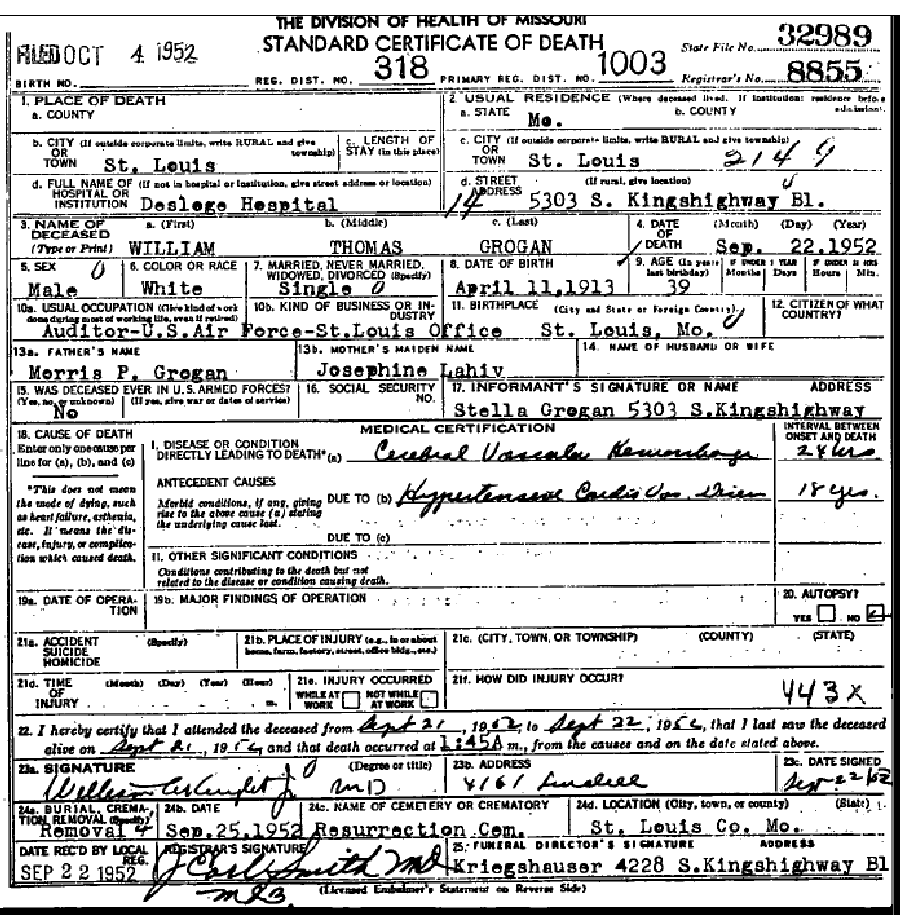 THE DIVISION OF HEALTH OF MISSOURI
STANDARD CERTIFICATE OF DEATH
FILED OCT 4 1952
State File No. 32989
BIRTH NO. REG. DIST. NO. 318 PRIMARY REG. DIST. NO. 1003 Registrar's No. 8855
1. PLACE OF DEATH
a. COUNTY
2. USUAL RESIDENCE (Where deceased lived. If institution: residence before admission).
a. STATE Mo. b. COUNTY
b. CITY (If outside corporate limits, write RURAL and give township) OR TOWN St. Louis
c. LENGTH OF STAY (in this place)
c. CITY (If outside corporate limits, write RURAL and give township) OR TOWN St. Louis 2149
d. FULL NAME OF HOSPITAL OR INSTITUTION (If not in hospital or institution, give street address or location) Desloge Hospital
d. STREET ADDRESS (If rural, give location) 14 5303 S. Kingshighway Bl.
3. NAME OF DECEASED (Type or Print) a. (First) WILLIAM b. (Middle) THOMAS c. (Last) GROGAN
4. DATE OF DEATH (Month) (Day) (Year) Sep. 22.1952
5. SEX Male
6. COLOR OR RACE White
7. MARRIED, NEVER MARRIED, WIDOWED, DIVORCED (Specify) Single
8. DATE OF BIRTH April 11,1913
9. AGE (In years last birthday) 39 IF UNDER 1 YEAR Months Days IF UNDER 24 HRS Hours Min.
10a. USUAL OCCUPATION (Give kind of work done during most of working life, even if retired) 10b. KIND OF BUSINESS OR INDUSTRY
Auditor-U.S.Air Force-St.Louis Office
11. BIRTHPLACE (City and State or Foreign Country) St. Louis, Mo.
12. CITIZEN OF WHAT COUNTRY?
13a. FATHER'S NAME Morris P. Grogan
13b. MOTHER'S MAIDEN NAME Josephine Lahiv
14. NAME OF HUSBAND OR WIFE
15. WAS DECEASED EVER IN U.S. ARMED FORCES? (Yes, no, or unknown) (If yes, give war or dates of service) No
16. SOCIAL SECURITY NO.
17. INFORMANT'S SIGNATURE OR NAME ADDRESS
Stella Grogan 5303 S.Kingshighway
18. CAUSE OF DEATH
Enter only one cause per line for (a), (b), and (c)
*This does not mean the mode of dying, such as heart failure, asthenia, etc. It means the disease, injury, or complication which caused death.
MEDICAL CERTIFICATION
INTERVAL BETWEEN ONSET AND DEATH
I. DISEASE OR CONDITION DIRECTLY LEADING TO DEATH* (a) Cerebral Vascular Hemorrhage 24 hrs
ANTECEDENT CAUSES
Morbid conditions, if any, giving rise to the above cause (a) stating the underlying cause last.
DUE TO (b) Hypertensive Cardio Vas. 18 yrs.
DUE TO (c)
II. OTHER SIGNIFICANT CONDITIONS
Conditions contributing to the death but not related to the disease or condition causing death.
19a. DATE OF OPERATION
19b. MAJOR FINDINGS OF OPERATION
20. AUTOPSY? YES NO
21a. ACCIDENT SUICIDE HOMICIDE (Specify)
21b. PLACE OF INJURY (e.g., in or about home, farm, factory, street, office bldg., etc.)
21c. (CITY, TOWN, OR TOWNSHIP) (COUNTY) (STATE)
21d. TIME OF INJURY (Month) (Day) (Year) (Hour) m.
21e. INJURY OCCURRED WHILE AT WORK NOT WHILE AT WORK
21f. HOW DID INJURY OCCUR? 443X
22. I hereby certify that I attended the deceased from Sept 21, 1952, to Sept 22, 1952, that I last saw the deceased
alive on Sept 21, 1952, and that death occurred at 1:45A m., from the causes and on the date stated above.
23a. SIGNATURE (Degree or title) MD
23b. ADDRESS 4161 Lindell
23c. DATE SIGNED Sept 22/52
24a. BURIAL, CREMATION, REMOVAL (Specify) Removal 4
24b. DATE Sep.25.1952
24c. NAME OF CEMETERY OR CREMATORY Resurrection Cem.
24d. LOCATION (City, town, or county) (State) St. Louis Co. Mo.
DATE REC'D BY LOCAL REG. SEP 22 1952
REGISTRAR'S SIGNATURE J Carl Smith MD
25. FUNERAL DIRECTOR'S SIGNATURE ADDRESS
Kriegshauser 4228 S.Kingshighway Bl
(Licensed Embalmer's Statement on Reverse Side)